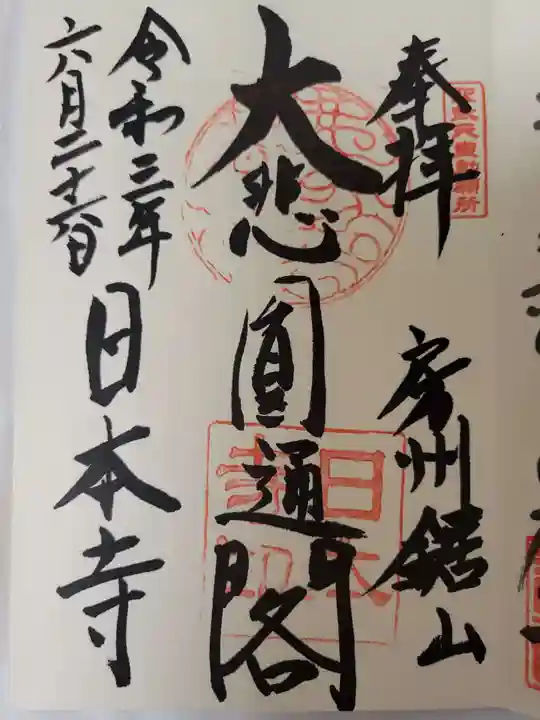 奉拝
房州鋸山
大悲圓通閣
令和三年
六月二十六日
日本寺
日本寺印